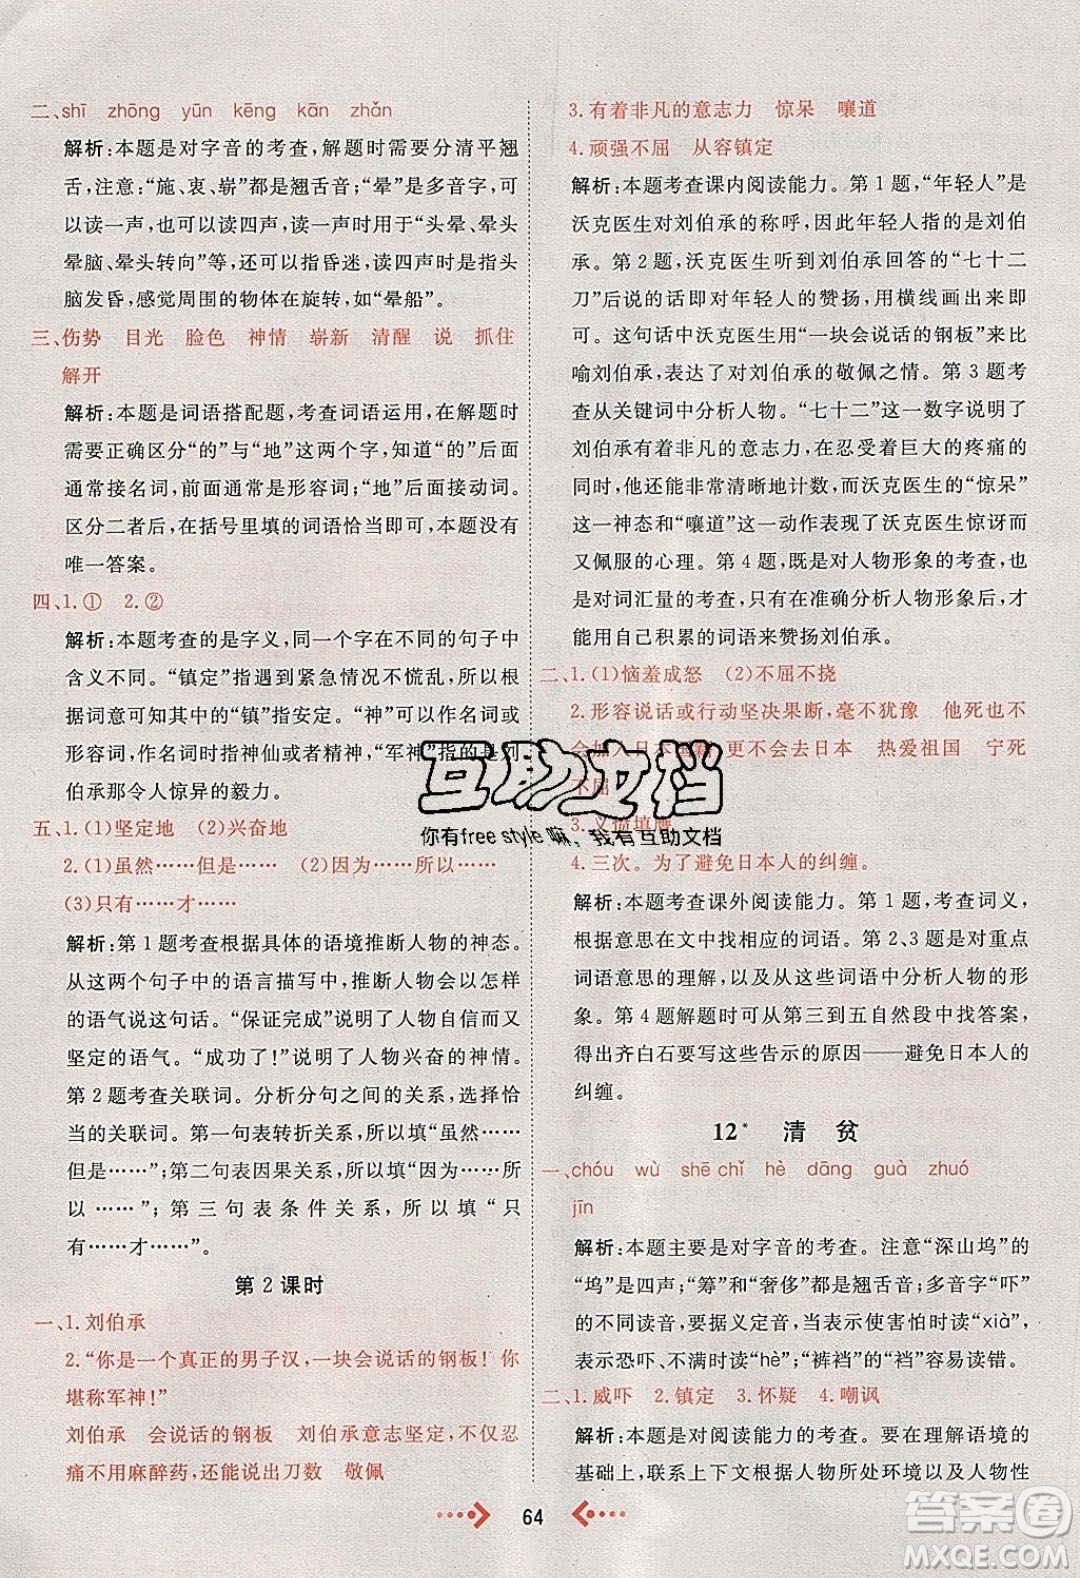 二、shī zhōng yūn kēng kān zhǎn
解析:本题是对字音的考查,解题时要分清平翘
舌,注意:“施、衷、崭”都是翘舌音,“晕”是多音字,可
以读一声,也可以读四声,读一声时用于“头晕、晕头
晕脑、晕头转向”等,还可指昏迷,读四声时用于指头
脑发昏,感觉周围的物体在旋转,如“晕船”。
三、伤势 目光 脸色 神情 崭新 清醒 说 抓住
解开
解析:本题是词语搭配题,考查词语运用,在解题时
需要正确区分“的”与“地”这两个字,知道“的”后面
通常接名词,特殊的接形容词;“地”后面接动词。
区分二者后,在括号里填的词语恰当即可,本题没有
唯一答案。
四、1.① 2.②
解析:本题考查的是字义,同一个字在不同的句子中
含义不同。“镇定”是指遇到紧急情况不慌乱,可以
根据词意可知其中的“镇”指安定。“神”可作名词或
形容词,作名词时指神仙或者精神,“军神”指的是刘
伯承那令人惊异的毅力。
五、1.(1)坚定地 (2)兴奋地
2.(1)虽然……但是…… (2)因为……所以……
(3)只有……才……
解析:第1题考查根据具体的语境推断人物的神态。
从这两个句子中的语言描写中,推断人物会以怎样
的语气说这句话。“保证完成”说明了人物自信而又
坚定的语气。“成功了!”说明了人物兴奋的神情。
第2题考查关联词。分析分句之间的关系,选择恰
当的关联词。第一句表转折关系,所以填“虽然……
但是……”;第二句表因果关系,所以填“因为……所
以……”;第三句表条件关系,所以填“只
有……才……”。
第2课时
一、1.刘伯承
2.“你是一个真正的男子汉,一块会说话的钢板!你
堪称军神!”
刘伯承 会说话的钢板 刘伯承意志坚定,不仅忍
痛不用麻醉药,还能说出刀数 敬佩
3.有着非凡的意志力 惊呆 嚷道
4.顽强不屈 从容镇定
解析:本题考查课内阅读能力。第1题,“年轻人”是
沃克医生对刘伯承的称呼,因此年轻人指的是刘伯
承。第2题,沃克医生听到刘伯承回答的“七十二
刀”后说的话即对年轻人的赞扬,用横线画出来。
这句话中沃克医生用“一块会说话的钢板”来比
喻刘伯承,表达了对刘伯承的敬佩之情。第3题考
查从关键词中分析人物。“七十二”这一数字说明了
刘伯承有着非凡的意志力,在忍受着巨大的疼痛的
同时,他还能非常清晰地计数,而沃克医生的“惊呆”
这一神态和“嚷道”这一动作表现了沃克医生惊讶而
又佩服的心理。第4题,是对人物形象的考查,也是
对词汇量的考查,只有在准确分析人物形象后,才
能用自己积累的词语来赞扬刘伯承。
二、1.(1)恼羞成怒 (2)不屈不挠
2.形容说话或行动坚决果断,毫不犹豫 他死也不
会加入日本 更不会去日本 热爱祖国 宁死
不屈
3.义愤填膺
4.三次。为了避免日本人的纠缠。
解析:本题考查课外阅读能力。第1题,考查词义,
根据意思在文中找相应的词语。第2、3题是对重点
词语意思的理解,以及从这些词语中分析人物的形
象。第4题解题时可以从第三到五自然段中找答案,
得出齐白石要写这些告示的原因——避免日本人的
纠缠。
12* 清 贫
一、chóu wù shē chǐ hè dāng guà zhuó
jīn
解析:本题主要是对字音的考查。注意“深山坞”的
“坞”是四声;“筹”和“奢侈”都是翘舌音;多音字“吓”
的读音,要根据义定音。当表示使害怕时读“xià”,
表示恐吓、不满时读“hè”;“裤裆”的“裆”容易读错。
二、1.威吓 2.镇定 3.怀疑 4.嘲讽
解析:本题是对阅读能力的考查。要在理解语境的
基础上,联系上下文根据人物所处环境以及人物性
互助文档
你有free style嘛,我有互助文档
64
答案圈
MXQE.COM